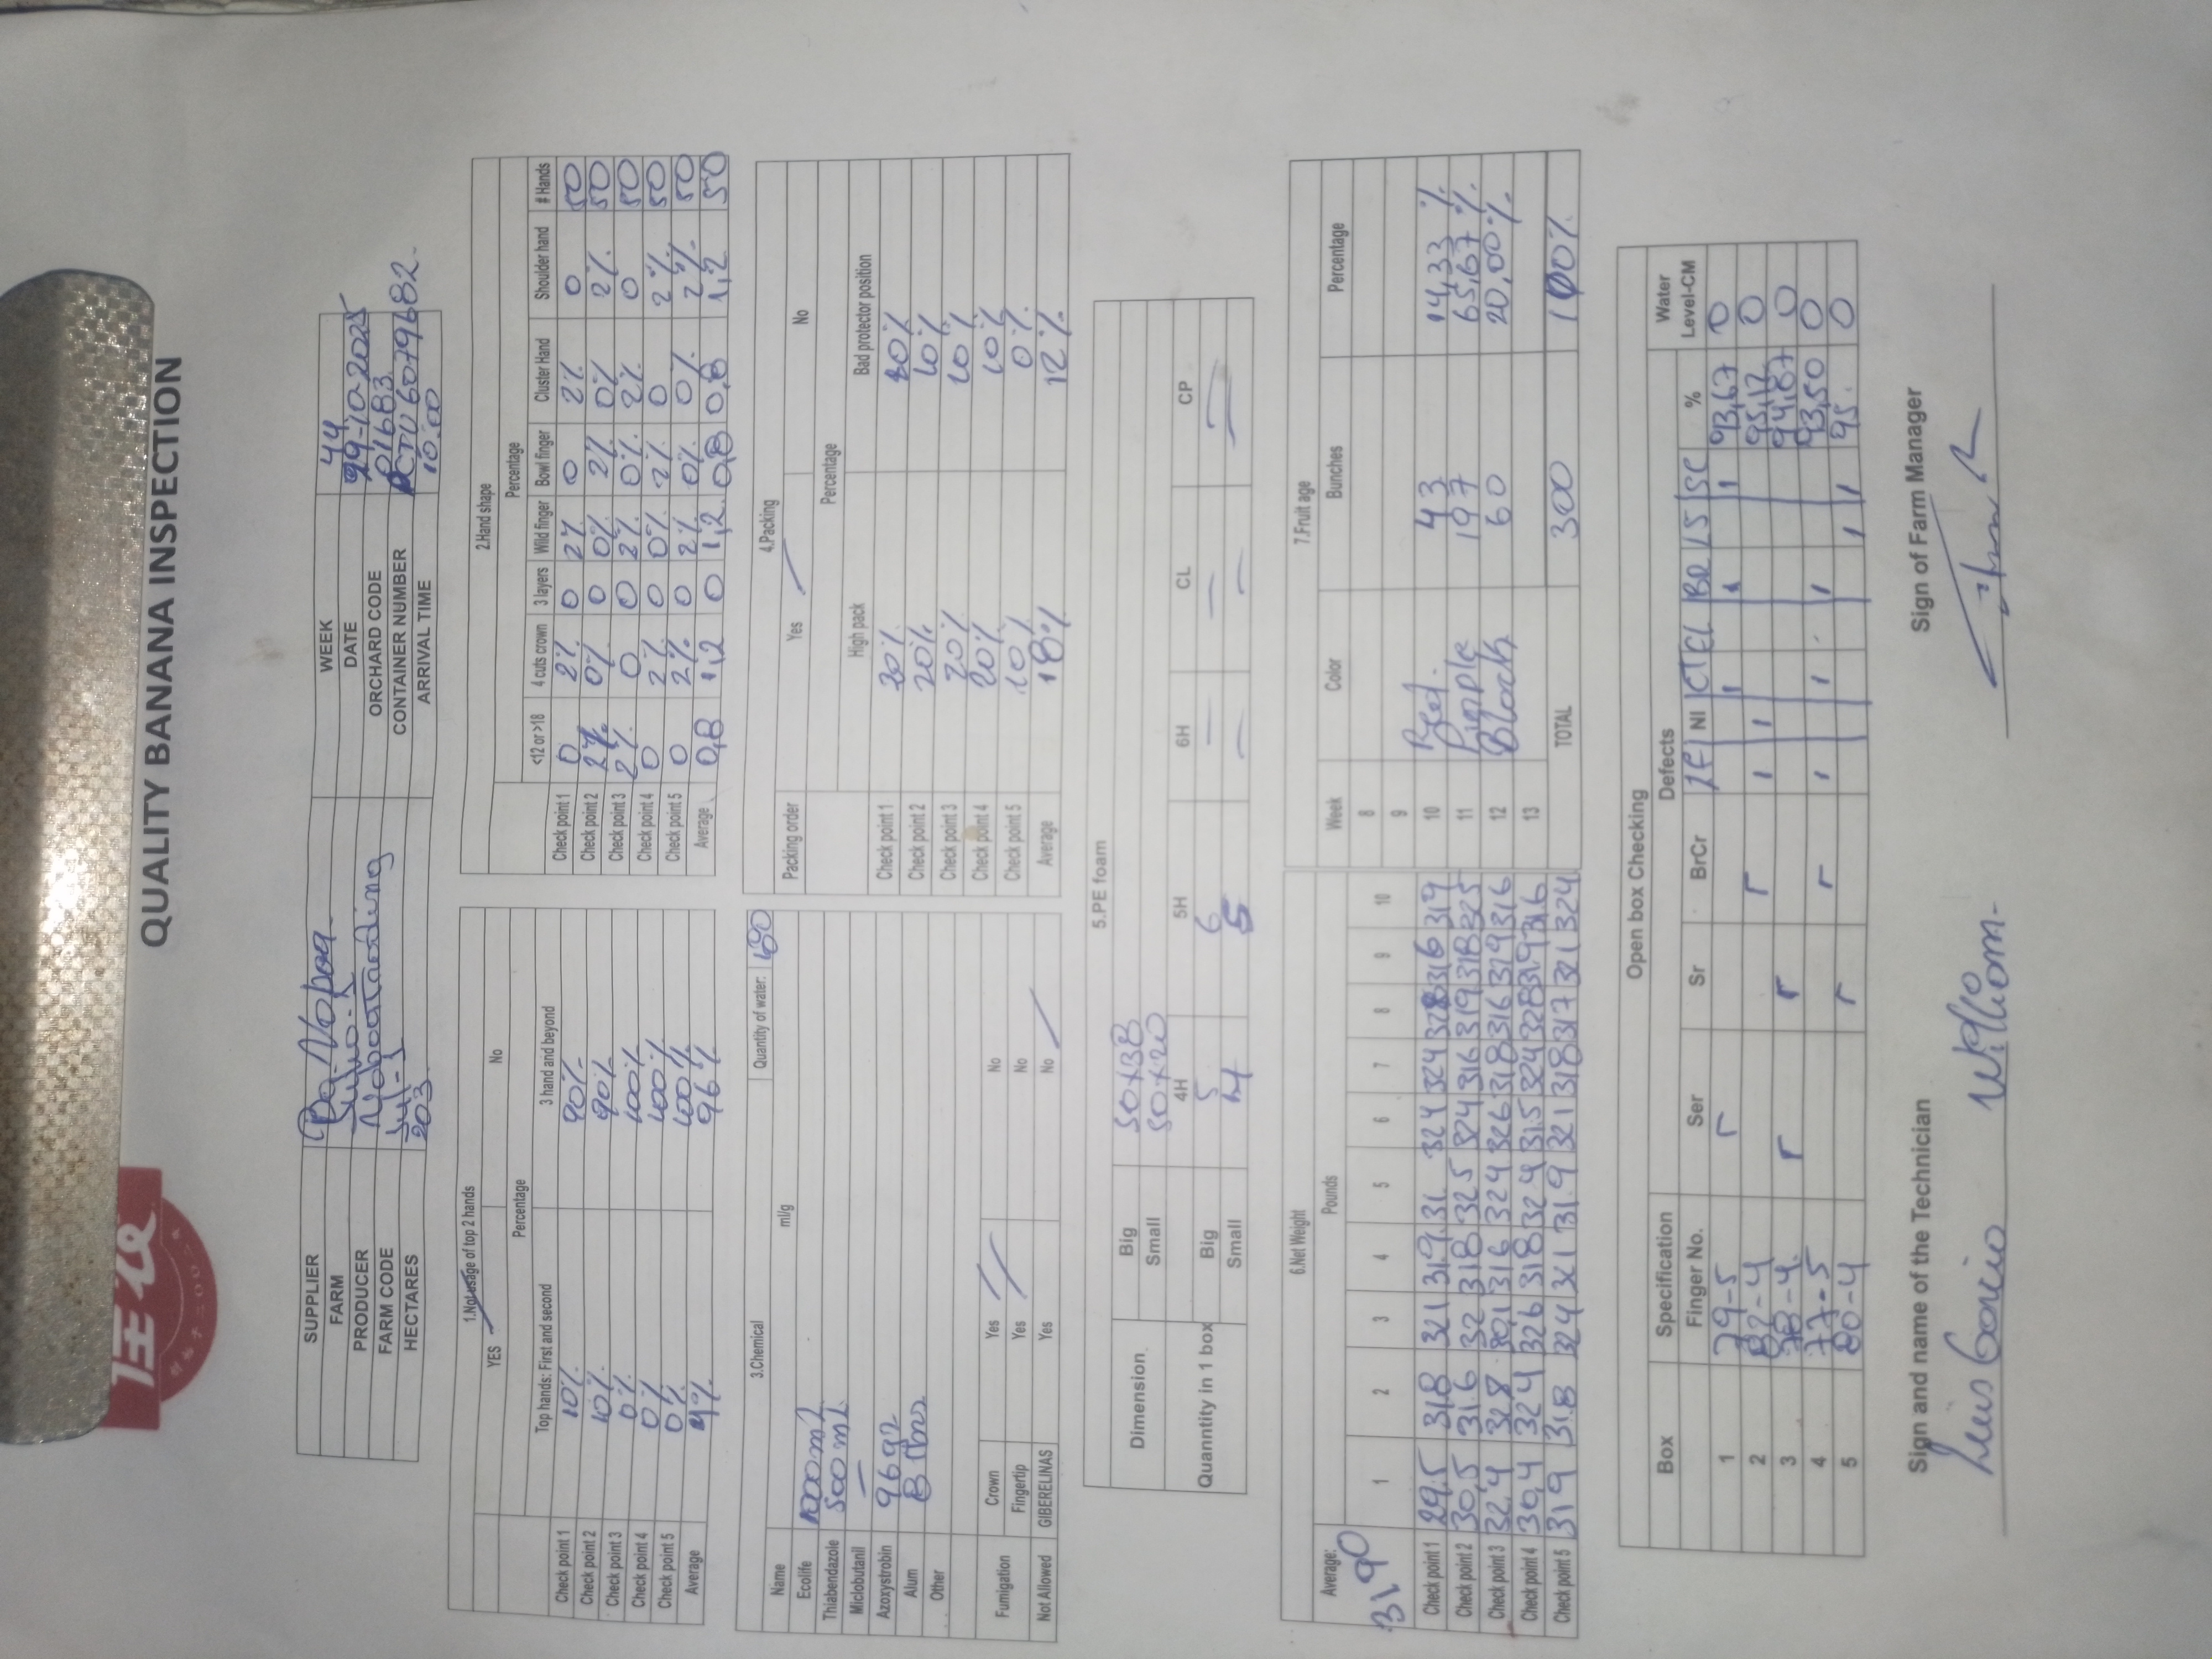 佳农
QUALITY BANANA INSPECTION
SUPPLIER Noboa WEEK 44
FARM Julio-1 DATE 29-10-2025
PRODUCER NoboaTrading ORCHARD CODE 01683
FARM CODE Jul-1 CONTAINER NUMBER CIU6079682
HECTARES 203 ARRIVAL TIME 10:00
1.Not usage of top 2 hands
YES No
Percentage
Top hands: First and second 3 hand and beyond
Check point 1 10% 90%
Check point 2 10% 90%
Check point 3 0% 100%
Check point 4 0% 100%
Check point 5 0% 100%
Average 4% 96%
2.Hand shape
Percentage
<12 or >18 4 cuts crown 3 layers Wild finger Bowl finger Cluster Hand Shoulder hand # Hands
Check point 1 0 2% 0 2% 0 2% 0 50
Check point 2 2% 0% 0 0% 2% 0% 2% 50
Check point 3 2% 0 0 2% 0% 2% 0 50
Check point 4 0 2% 0 0% 2% 0 2% 50
Check point 5 0 2% 0 2% 0% 0% 2% 50
Average 0,8 1,2 0 1,2 0,8 0,8 1,2 50
3.Chemical Quantity of water:
Name ml/g
Ecolife 1000ml
Thiabendazole 500ml
Miclobutanil —
Azoxystrobin 96gr
Alum 8
Other
Fumigation Crown Yes No
Fingertip Yes No
Not Allowed GIBERELINAS Yes No
4.Packing
Packing order Yes No
Percentage
High pack Bad protector position
Check point 1 20%
Check point 2 20% 10%
Check point 3 20% 10%
Check point 4 20% 10%
Check point 5 10% 0%
Average 18% 12%
5.PE foam
Dimension Big 50x38
Small 50x20
4H 5H 6H CL CP
Quanntity in 1 box Big 5 6 — — —
Small 4 5 — — —
6.Net Weight
Average: 3190 Pounds
1 2 3 4 5 6 7 8 9 10
Check point 1 29.5 31.8 321 31.9 31. 324 324 328 316 319
Check point 2 30,5 31.6 32 318 325 324 316 319 318 325
Check point 3 32,4 328 30,1 316 324 326 318 316 319 316
Check point 4 30,4 324 326 318 324 31.5 324 328 319 316
Check point 5 319 31.8 324 321 31.9 321 318 317 321 324
7.Fruit age
Week Color Bunches Percentage
8
9
10 Red. 43 14,33 %
11 Purple 197 65,67 %
12 Black 60 20,00%
13
TOTAL 300 100%
Open box Checking
Box Specification Defects Water
Finger No. Ser Sr BrCr NI CT FL BR LS SC % Level-CM
1 79-5 r 1 1 1 93,67 0
2 82-4 r 1 1 95,12 0
3 78-4 r r 94,87 0
4 77-5 r 1 1 1 93,50 0
5 80-4 r 1 1 95. 0
Sign and name of the Technician Sign of Farm Manager
Luis Garcia William.